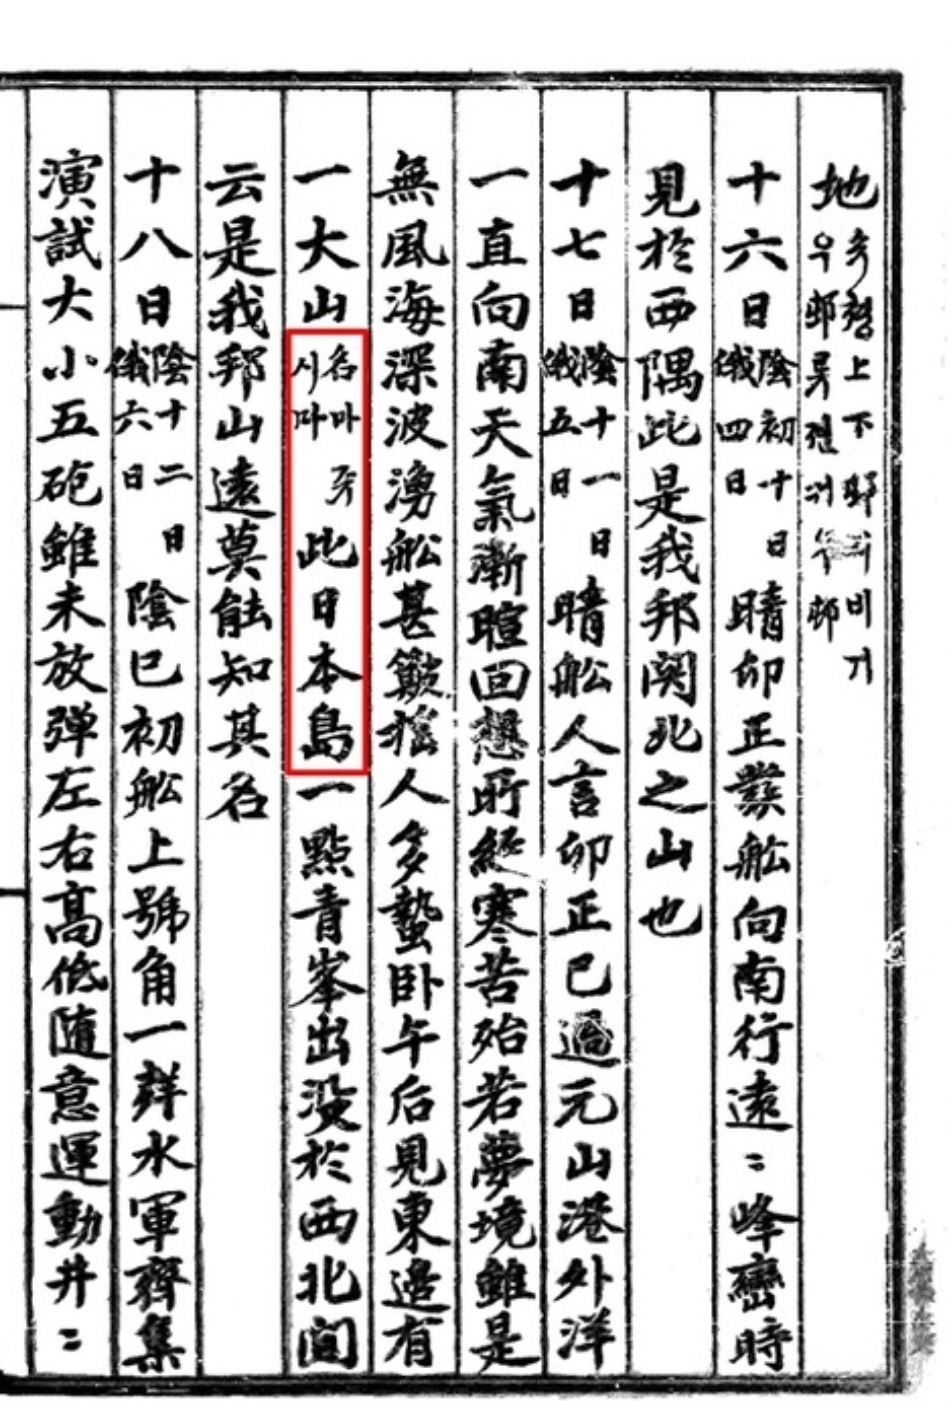 地
十六日陰初十日俄四日晴卯正發船向南行遠〻峰巒時
見於西隅此是我邦関北之山也
十七日陰十一日俄五日晴船人言卯正已過元山港外洋
一直向南天氣漸暄回想所經寒苦殆若夢境雖是
無風海深波湧船甚簸搖人多蟄卧午后見東邊有
一大山名마즈시마此日本島一點青峯出沒於西北間
云是我邦山遠莫能知其名
十八日陰十二日俄六日陰巳初船上號角一水軍齊集
演試大小五砲雖未放彈左右高低隨意運動井〻